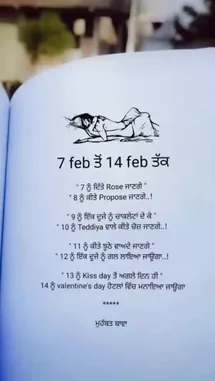 7 feb ਤੋਂ 14 feb ਤੱਕ
" 7 ਨੂੰ ਦਿੱਤੇ Rose ਜਾਣਗੇ "
" 8 ਨੂੰ ਕੀਤੇ Propose ਜਾਣਗੇ..!
" 9 ਨੂੰ ਇੱਕ ਦੂਜੇ ਨੂੰ ਚਾਕਲੇਟਾਂ ਦੇ ਕੇ "
" 10 ਨੂੰ Teddiya ਵਾਲੇ ਕੀਤੇ ਚੋਜ਼ ਜਾਣਗੇ..!
" 11 ਨੂੰ ਕੀਤੇ ਝੂਠੇ ਵਾਅਦੇ ਜਾਣਗੇ "
" 12 ਨੂੰ ਇੱਕ ਦੂਜੇ ਨੂੰ ਗਲ ਲਾਇਆ ਜਾਊਂਗਾ..!
" 13 ਨੂੰ Kiss day ਤੋਂ ਅਗਲੇ ਦਿਨ ਹੀ "
14 ਨੂੰ valentine's day ਹੋਟਲਾਂ ਵਿੱਚ ਮਨਾਇਆ ਜਾਊਂਗਾ
*****
ਮੁਹੱਬਤ ਬਾਵਾ